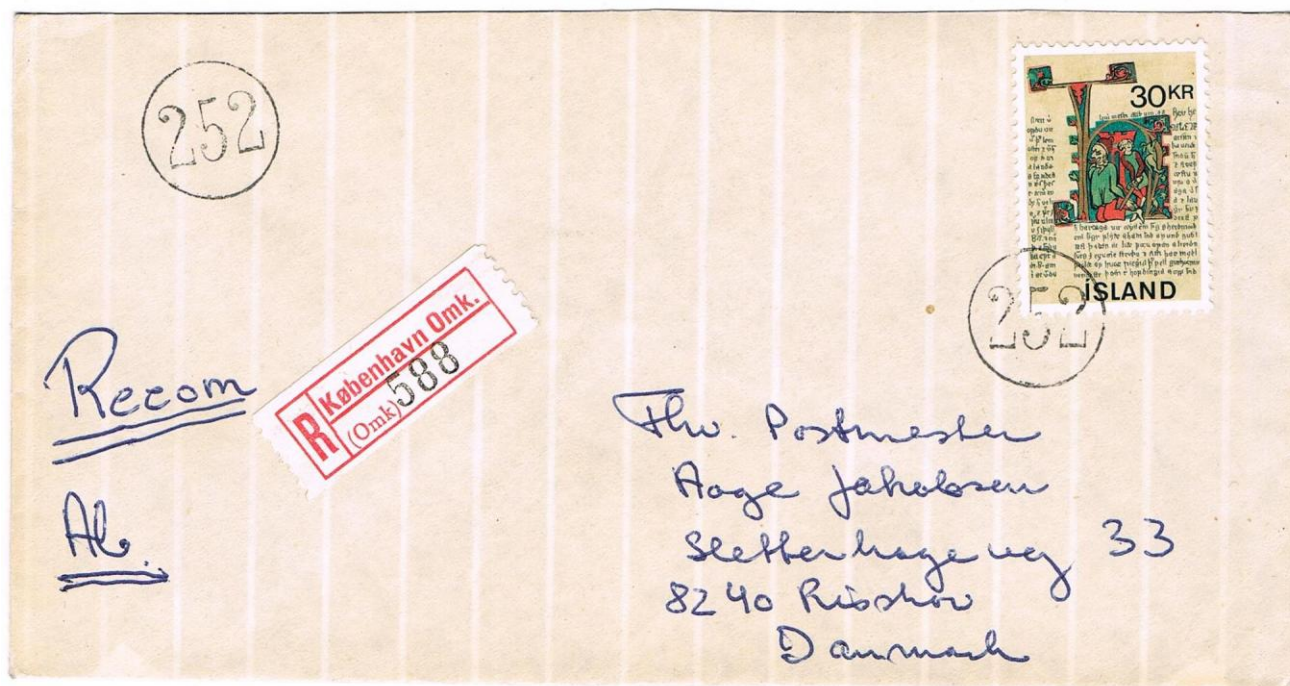 252
30KR
ÍSLAND
252
R
København Omk.
(Omk) 588
Recom
Ab.
Hr. Postmester
Aage Jakobsen
Slettenhagevej 33
8240 Risskov
Danmark